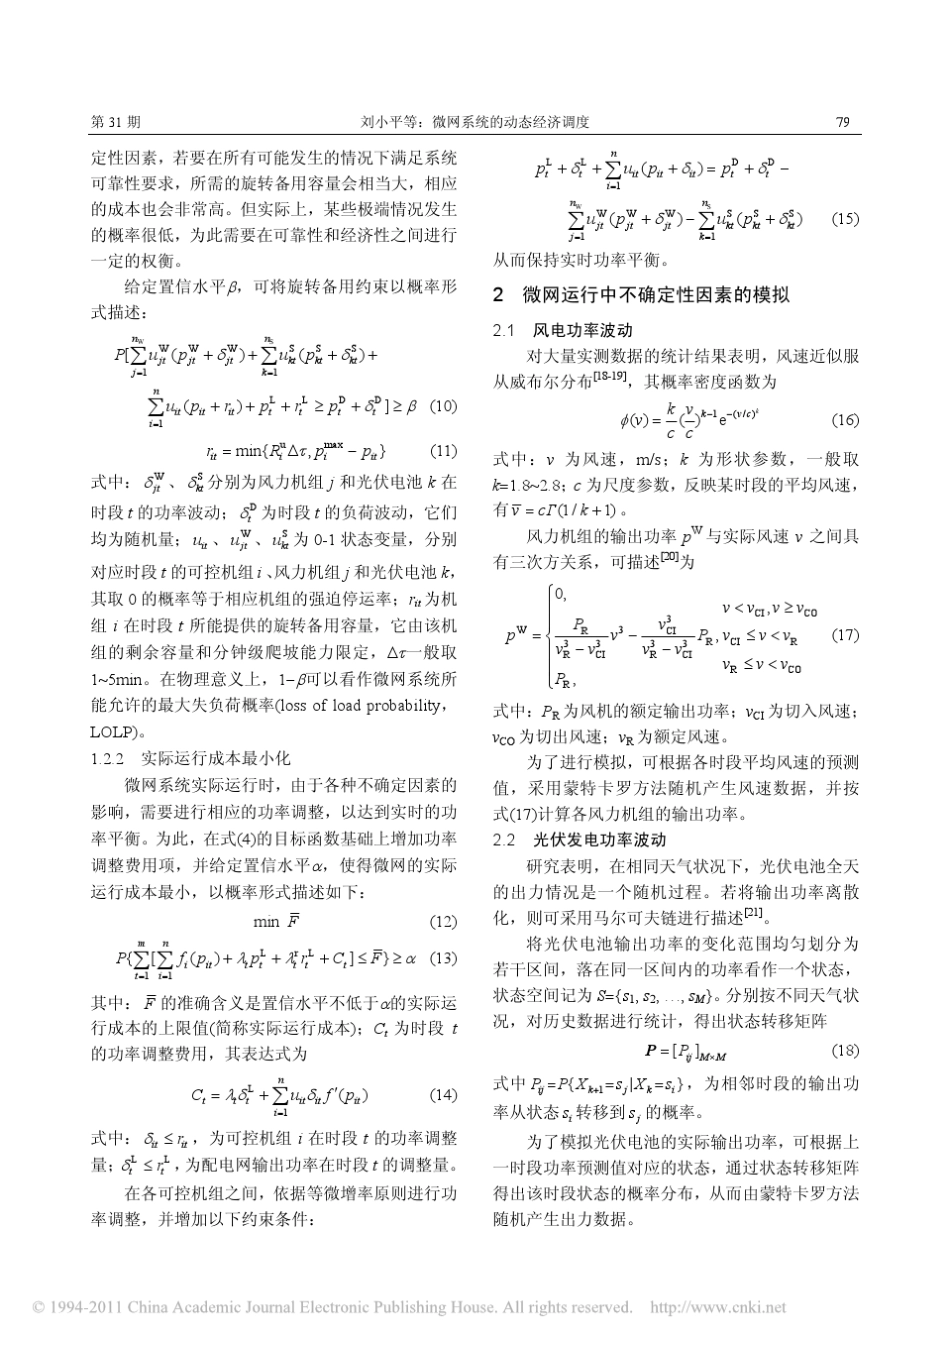 第 31 期 刘小平等：微网系统的动态经济调度 79
定性因素，若要在所有可能发生的情况下满足系统
可靠性要求，所需的旋转备用容量会相当大，相应
的成本也会非常高。但实际上，某些极端情况发生
的概率很低，为此需要在可靠性和经济性之间进行
一定的权衡。
给定置信水平β，可将旋转备用约束以概率形
式描述：
P[∑_{j=1}^{n_W} u_{jt}^W (p_{jt}^W + δ_{jt}^W) + ∑_{k=1}^{n_S} u_{kt}^S (p_{kt}^S + δ_{kt}^S) +
∑_{i=1}^{n} u_{it} (p_{it} + r_{it}) + p_t^L + r_t^L ≥ p_t^D + δ_t^D ] ≥ β (10)
r_{it} = min{R_i^u Δτ, p_i^{max} − p_{it}} (11)
式中：δ_{jt}^W、δ_{kt}^S 分别为风力机组 j 和光伏电池 k 在
时段 t 的功率波动；δ_t^D 为时段 t 的负荷波动，它们
均为随机量；u_{it}、u_{jt}^W、u_{kt}^S 为 0-1 状态变量，分别
对应时段 t 的可控机组 i、风力机组 j 和光伏电池 k，
其取 0 的概率等于相应机组的强迫停运率；r_{it} 为机
组 i 在时段 t 所能提供的旋转备用容量，它由该机
组的剩余容量和分钟级爬坡能力限定，Δτ一般取
1~5min。在物理意义上，1−β可以看作微网系统所
能允许的最大失负荷概率(loss of load probability，
LOLP)。
1.2.2 实际运行成本最小化
微网系统实际运行时，由于各种不确定因素的
影响，需要进行相应的功率调整，以达到实时的功
率平衡。为此，在式(4)的目标函数基础上增加功率
调整费用项，并给定置信水平α，使得微网的实际
运行成本最小，以概率形式描述如下：
min F̅ (12)
P{∑_{t=1}^{m} [∑_{i=1}^{n} f_i(p_{it}) + λ_t p_t^L + λ_t^r r_t^L + C_t] ≤ F̅} ≥ α (13)
其中：F̅ 的准确含义是置信水平不低于α的实际运
行成本的上限值(简称实际运行成本)；C_t 为时段 t
的功率调整费用，其表达式为
C_t = λ_t δ_t^L + ∑_{i=1}^{n} u_{it} δ_{it} f′(p_{it}) (14)
式中：δ_{it} ≤ r_{it}，为可控机组 i 在时段 t 的功率调整
量；δ_t^L ≤ r_t^L，为配电网输出功率在时段 t 的调整量。
在各可控机组之间，依据等微增率原则进行功
率调整，并增加以下约束条件：
p_t^L + δ_t^L + ∑_{i=1}^{n} u_{it} (p_{it} + δ_{it}) = p_t^D + δ_t^D −
∑_{j=1}^{n_W} u_{jt}^W (p_{jt}^W + δ_{jt}^W) − ∑_{k=1}^{n_S} u_{kt}^S (p_{kt}^S + δ_{kt}^S) (15)
从而保持实时功率平衡。
2 微网运行中不确定性因素的模拟
2.1 风电功率波动
对大量实测数据的统计结果表明，风速近似服
从威布尔分布[18-19]，其概率密度函数为
ϕ(v) = k/c (v/c)^{k−1} e^{−(v/c)^k} (16)
式中：v 为风速，m/s；k 为形状参数，一般取
k=1.8~2.8；c 为尺度参数，反映某时段的平均风速，
有 v̅ = cΓ(1/k + 1)。
风力机组的输出功率 p^W 与实际风速 v 之间具
有三次方关系，可描述[20]为
p^W = { 0, v < v_CI, v ≥ v_CO
P_R/(v_R^3 − v_CI^3) v^3 − v_CI^3/(v_R^3 − v_CI^3) P_R, v_CI ≤ v < v_R (17)
P_R, v_R ≤ v < v_CO
式中：P_R 为风机的额定输出功率；v_CI 为切入风速；
v_CO 为切出风速；v_R 为额定风速。
为了进行模拟，可根据各时段平均风速的预测
值，采用蒙特卡罗方法随机产生风速数据，并按
式(17)计算各风力机组的输出功率。
2.2 光伏发电功率波动
研究表明，在相同天气状况下，光伏电池全天
的出力情况是一个随机过程。若将输出功率离散
化，则可采用马尔可夫链进行描述[21]。
将光伏电池输出功率的变化范围均匀划分为
若干区间，落在同一区间内的功率看作一个状态，
状态空间记为 S={s_1, s_2, …, s_M}。分别按不同天气状
况，对历史数据进行统计，得出状态转移矩阵
P = [P_{ij}]_{M×M} (18)
式中 P_{ij}=P{X_{k+1}=s_j|X_k=s_i}，为相邻时段的输出功
率从状态 s_i 转移到 s_j 的概率。
为了模拟光伏电池的实际输出功率，可根据上
一时段功率预测值对应的状态，通过状态转移矩阵
得出该时段状态的概率分布，从而由蒙特卡罗方法
随机产生出力数据。
© 1994-2011 China Academic Journal Electronic Publishing House. All rights reserved. http://www.cnki.net